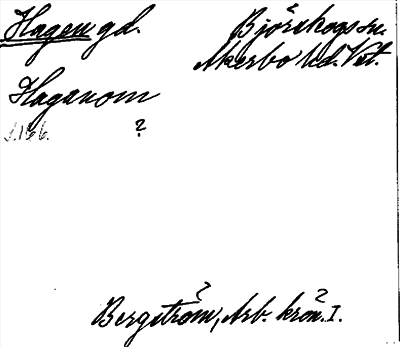 Hagen gd.
Björskogs sn.
Åkerbo hd. Vstl.
Haganom
s. 166. ?
?
Bergström, Arb. kron. I.